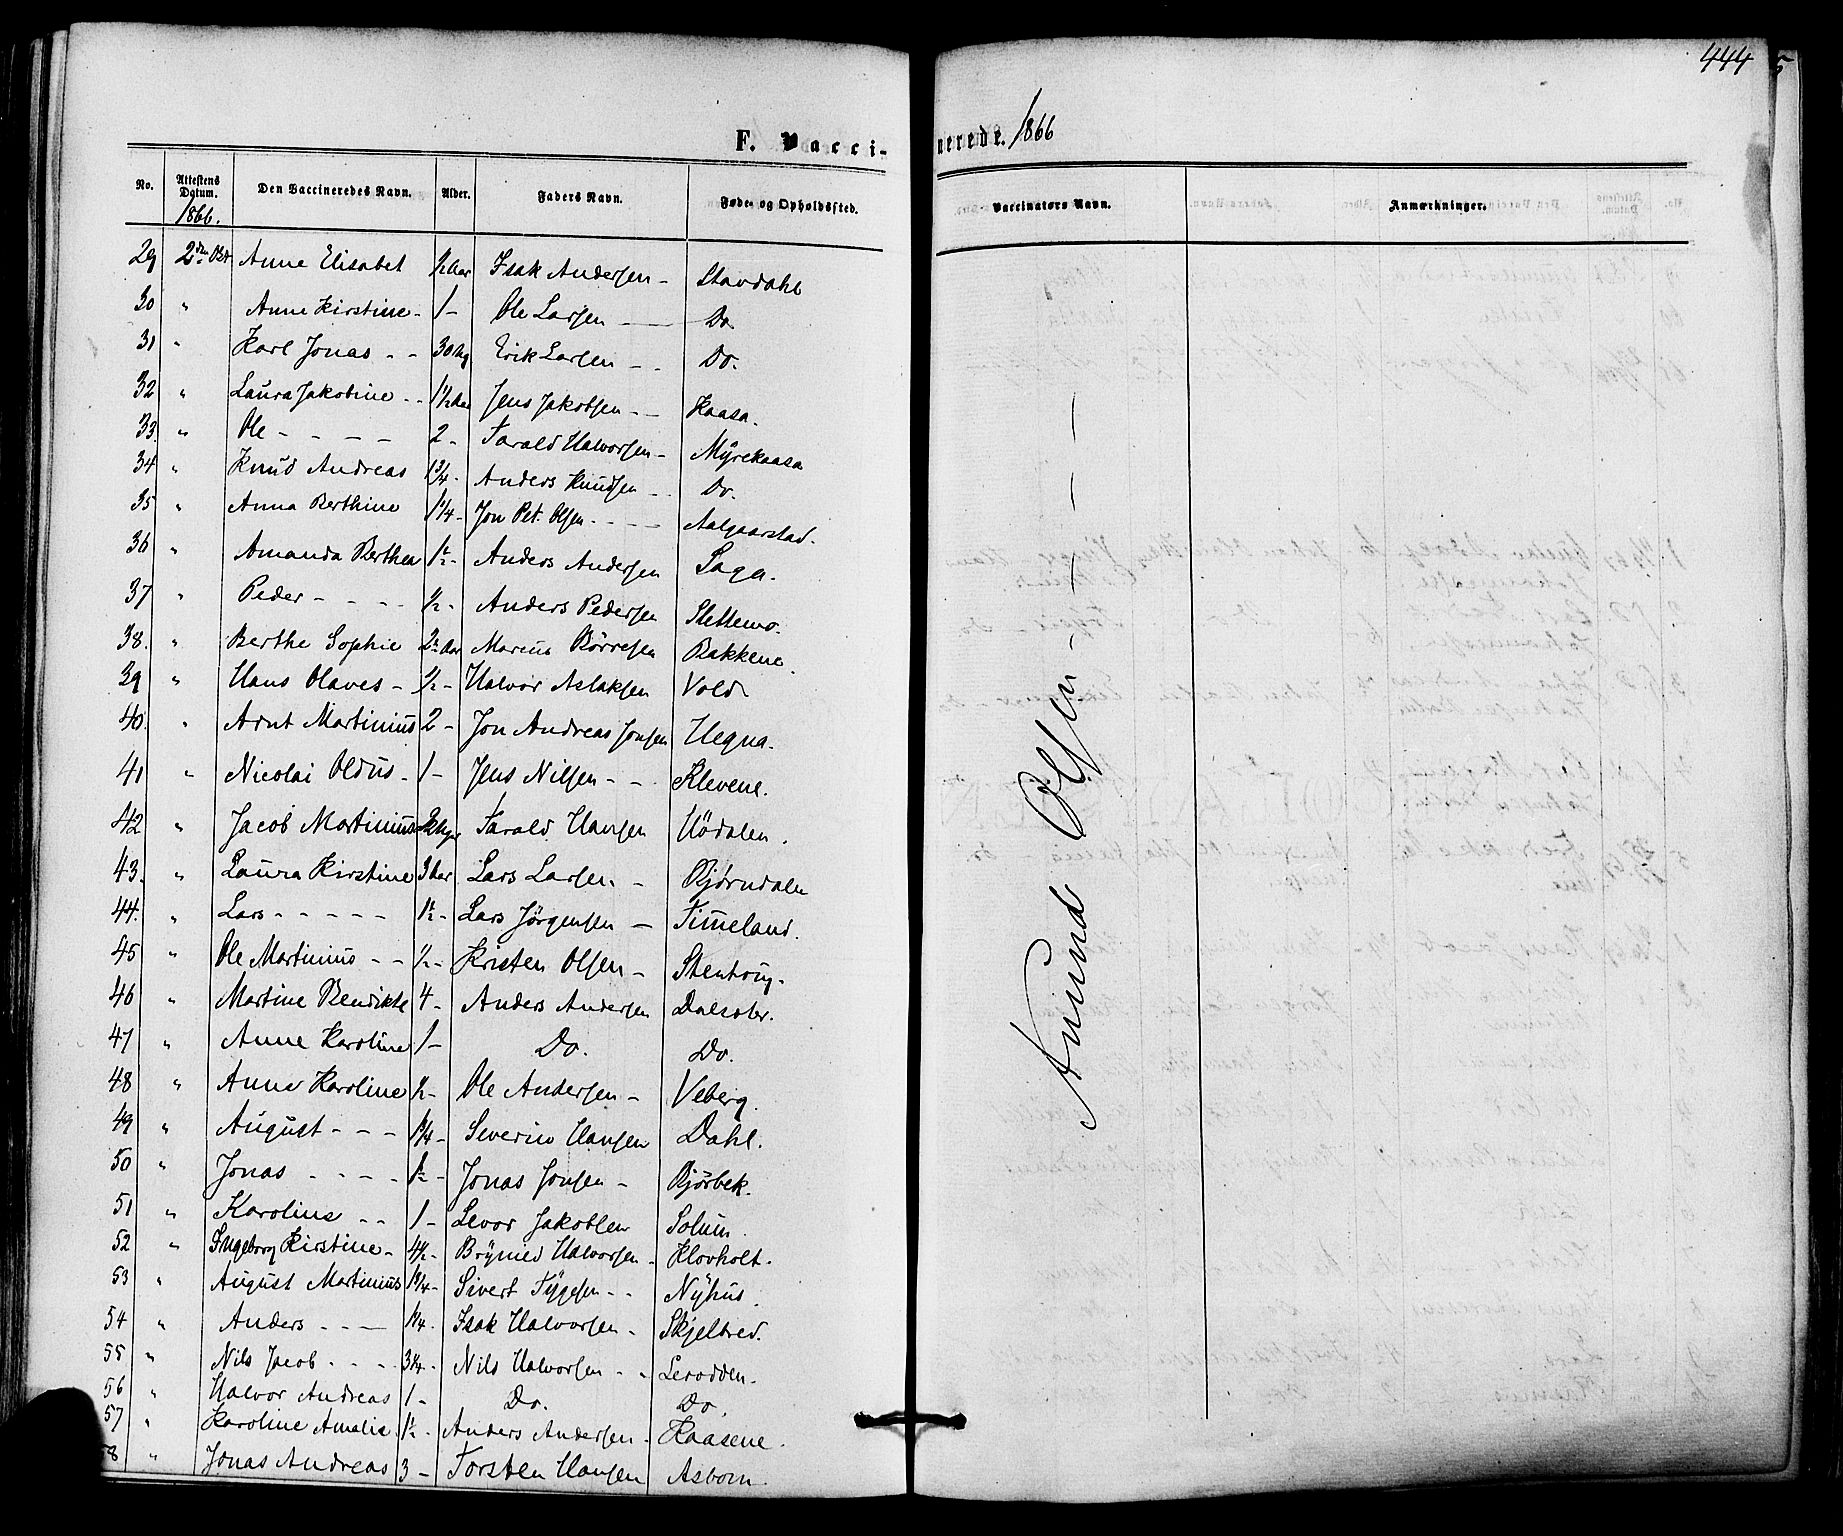 444 5
F. Vaccinerede. 1866
No. | Attestens Datum. 1866. | Den Vaccineredes Navn. | Alder. | Faders Navn. | Føde- og Opholdssted. | Vaccinators Navn. | Anmærkninger.
29 | 2den Okt | Anne Elisabet | ½ Aar | Isak Andersen - | Stavdahl
30 | " | Anne Kirstine - | 1 - | Ole Larsen - | Do
31 | " | Karl Jonas - - | 30 Ug | Erik Larsen - - | Do.
32 | " | Laura Jakobine - - | 1½ Aar | Jens Jakobsen - - | Kaasa.
33. | " | Ole - - - - | 2 - | Tarald Halvorsen - | Myrekaasa
34 | " | Knud Andreas | 1¾ - | Anders Knudsen - - | Do.
35 | " | Anna Berthine | 1¼ - | Jon Pet. Olsen - - - - | Aalgaarstad.
36 | " | Amanda Berthea | 1½ - | Anders Andersen | Saga.
37 | " | Peder - - - - | ½ - | Anders Pedersen | Slettemo.
38. | " | Berthe Sophie | 2½ Aar | Marcus Börresen | Bakkene.
39 | " | Hans Olaves - | ½ - | Halvor Aslaksen | Vold
40. | " | Arnt Martinius | 2 - | Jon Andreas Jonsen | Hegna.
41 | " | Nicolai Oldus - | 1 - | Jens Nilsen - - | Klevene.
42 | " | Jacob Martinius | | Tarald Hansen | Hödalen.
43. | " | Laura Kirstine | 3 Aar | Lars Larsen - | Bjørndalen
44. | " | Lars - - - - - | 1½ - | Lars Jørgensen - | Timeland.
45 | " | Ole Martinius - - | ½ - | Kristen Olsen - |
46 | " | Martine Bendikte | 4 - | Anders Andersen | Dalsater.
47 | " | Anne Karoline | 1 - | Do. | Do.
48 | " | Anne Karoline | ½ - | Ole Andersen - | Veberg.
49 | " | August - - - | ¾ - | Severin Hansen | Dahl.
50 | " | Jonas - - - - | 1½ - | Jonas Jonsen - | Bjørbek.
51 | " | Karoline - - | 1 - | Levor Jakobsen | Solum.
52 | " | Ingeborg Kirstine - | 4½ - | Brynild Halvorsen - | Klovholt.
53 | " | August Martinius | 1¾ - | Sivert Tygesen - - | Nyhus.
54 | " | Anders - - - | ¼ - | Isak Halvorsen - | Skjelbred.
55 | " | Nils Jacob - - - - | 3¼ - | Nils Halvorsen - - | Lerodden.
56 | " | Halvor Andreas | 1 - | Do. | Do.
57 | " | Karoline Amalie. | 1½ - | Anders Andersen - | Kaasene.
58 | " | Jonas Andreas | 3 - | Torsten Hansen | Asbom.
Amund Olsen - - - - -